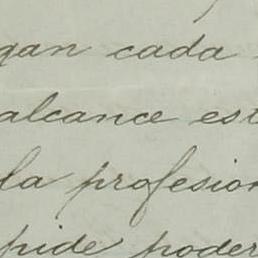 gan cada
alcance est
la profesion
pide poder